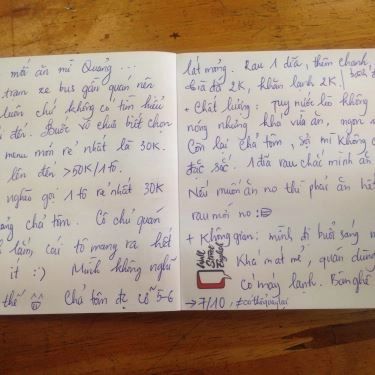 mới ăn mì Quảng...
trạm xe bus gần quán nên
luôn chứ không có tìm hiểu
i đến. Bước vô chưa biết chọn
menu món rẻ nhất là 30K.
lên đến >50K/1 tô.
nghèo gọi 1 tô rẻ nhất 30K
ảng chả tôm. Cô chủ quán
lắm, cái tô mang ra hết
it :) Mình không nghĩ
thế Chả tôm đc cỡ 5-6
lát mỏng. Rau 1 dĩa, thêm chanh,
đá 2K, khăn lạnh 2K.
+ Chất lượng: Tuy nước lèo không
nóng nhưng khá vừa ăn, ngon
Còn lại chả tôm, sợi mì không
đặc sắc. 1 dĩa rau chắc mình ăn
Nếu muốn ăn no thì phải ăn hết
rau mới no :D
+ Không gian: mình đi buổi sáng
Khá mát mẻ, quán dùng
có máy lạnh. Bàn ghế
→ 7/10, #cothequaylai